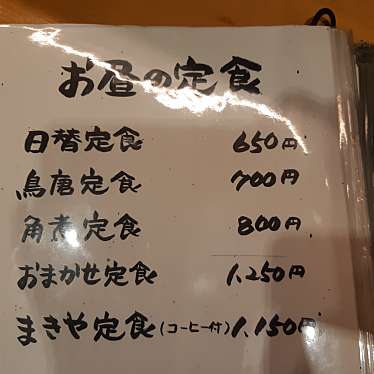 お昼の定食
日替定食 650円
鳥唐定食 700円
角煮定食 800円
おまかせ定食 1,250円
まきや定食(コーヒー付) 1,150円